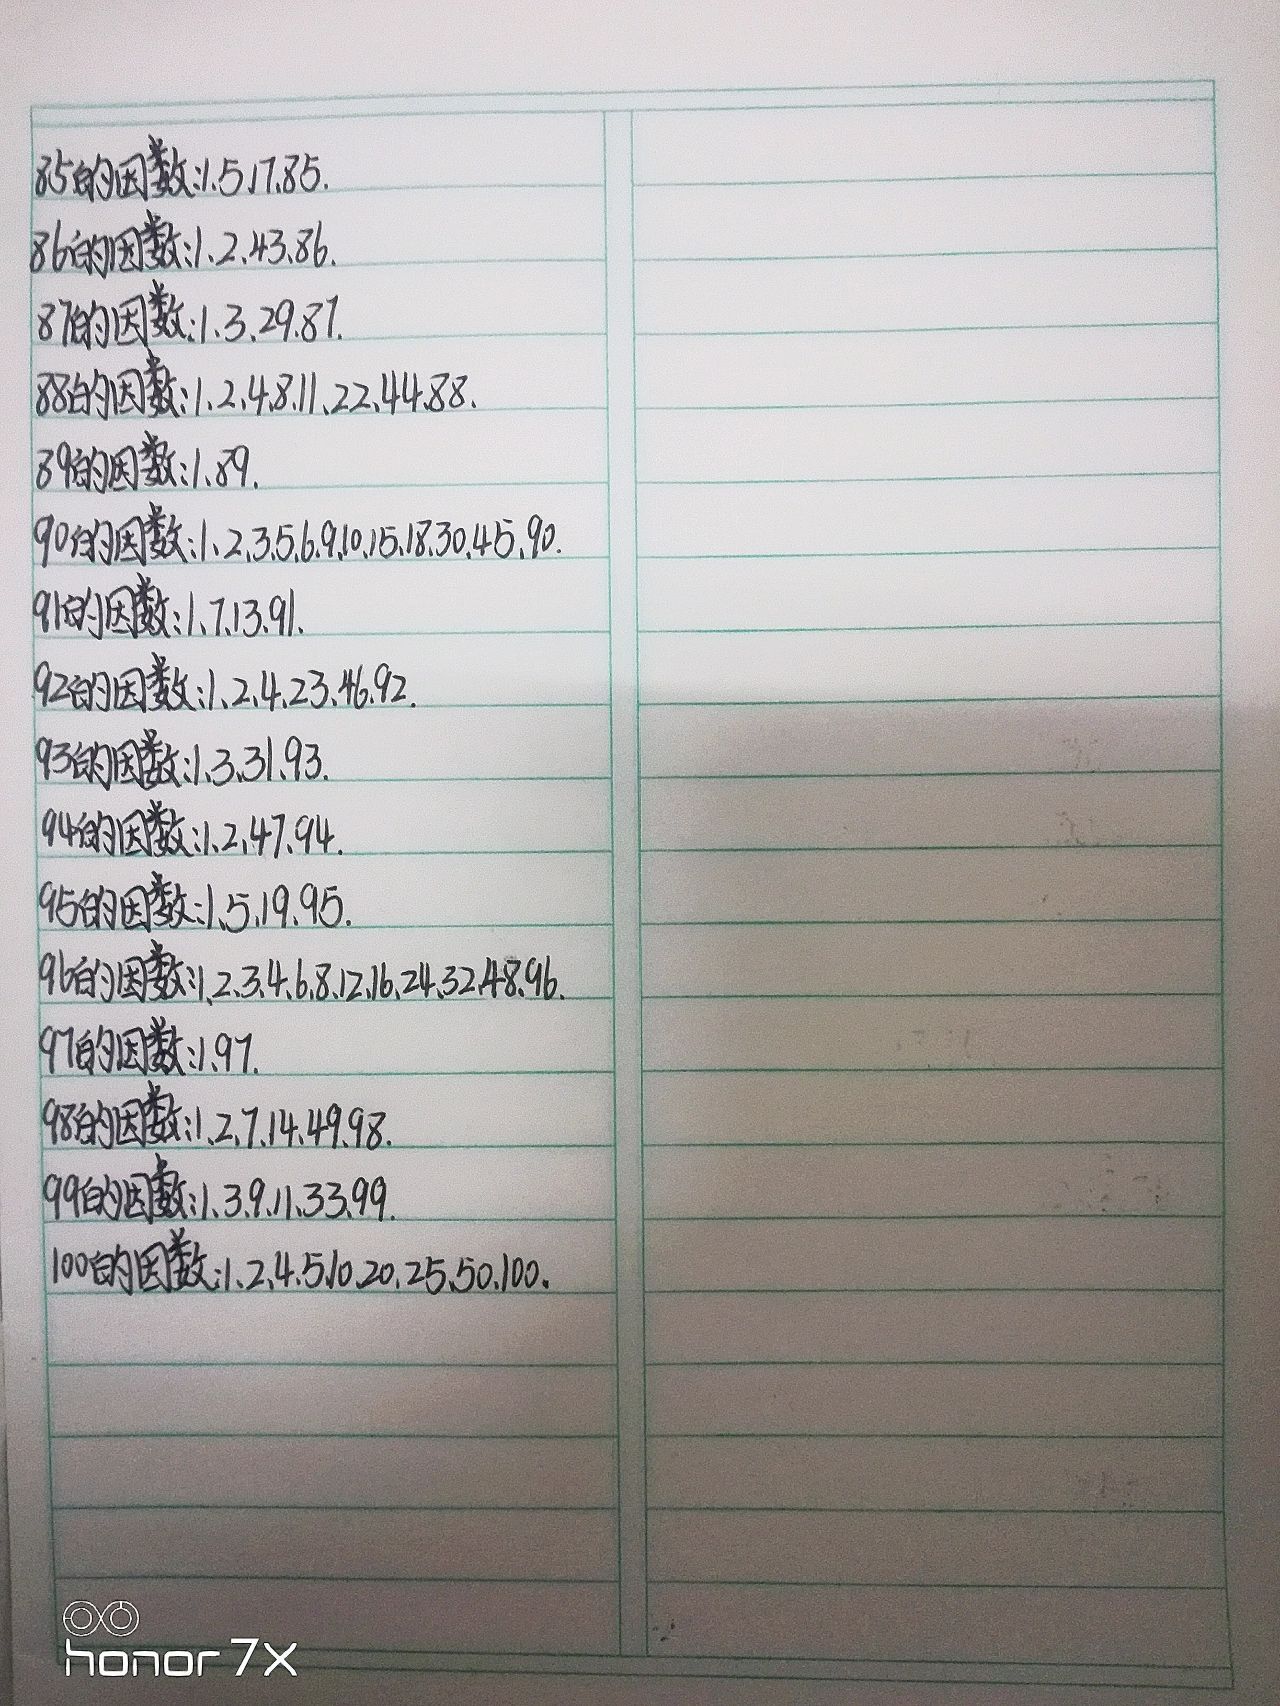 85的因数:1、5、17、85.
86的因数:1、2、43、86.
87的因数:1、3、29、87.
88的因数:1、2、4、8、11、22、44、88.
89的因数:1、89.
90的因数:1、2、3、5、6、9、10、15、18、30、45、90.
91的因数:1、7、13、91.
92的因数:1、2、4、23、46、92.
93的因数:1、3、31、93.
94的因数:1、2、47、94.
95的因数:1、5、19、95.
96的因数:1、2、3、4、6、8、12、16、24、32、48、96.
97的因数:1、97.
98的因数:1、2、7、14、49、98.
99的因数:1、3、9、11、33、99.
100的因数:1、2、4、5、10、20、25、50、100.
honor 7X